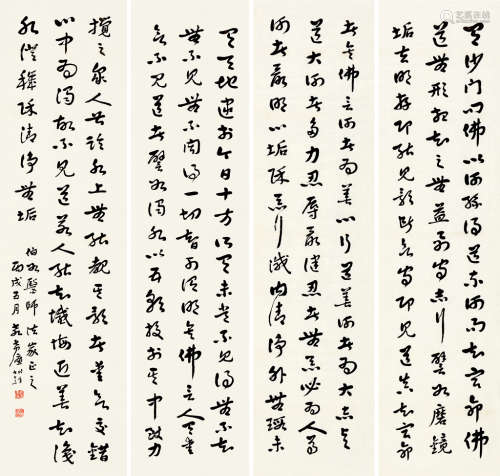 有沙門問佛以何緣得道奈何知宿命佛
道無形相知之無益要當守志行譬如磨鏡
垢去明存即能見影斷欲守空即見道真知宿命
者矣佛言何者為善行道善何者大志與
道大何者多力忍辱最健忍者無惡必為人尊
何者最明心垢除惡行滅內清淨外無瑕未
有天地逮於今日十方所有未嘗不見得無不知
無不見無不聞得一切智可謂明矣佛言人懷愛
欲不見道者譬如濁水以五彩投於其中致力
攪之眾人共臨水上無能覩其影者愛欲交錯
心中為濁故不見道若人能知懺悔近善知識
水澄穢除清淨無垢
醫師法家正之
丙戌五月